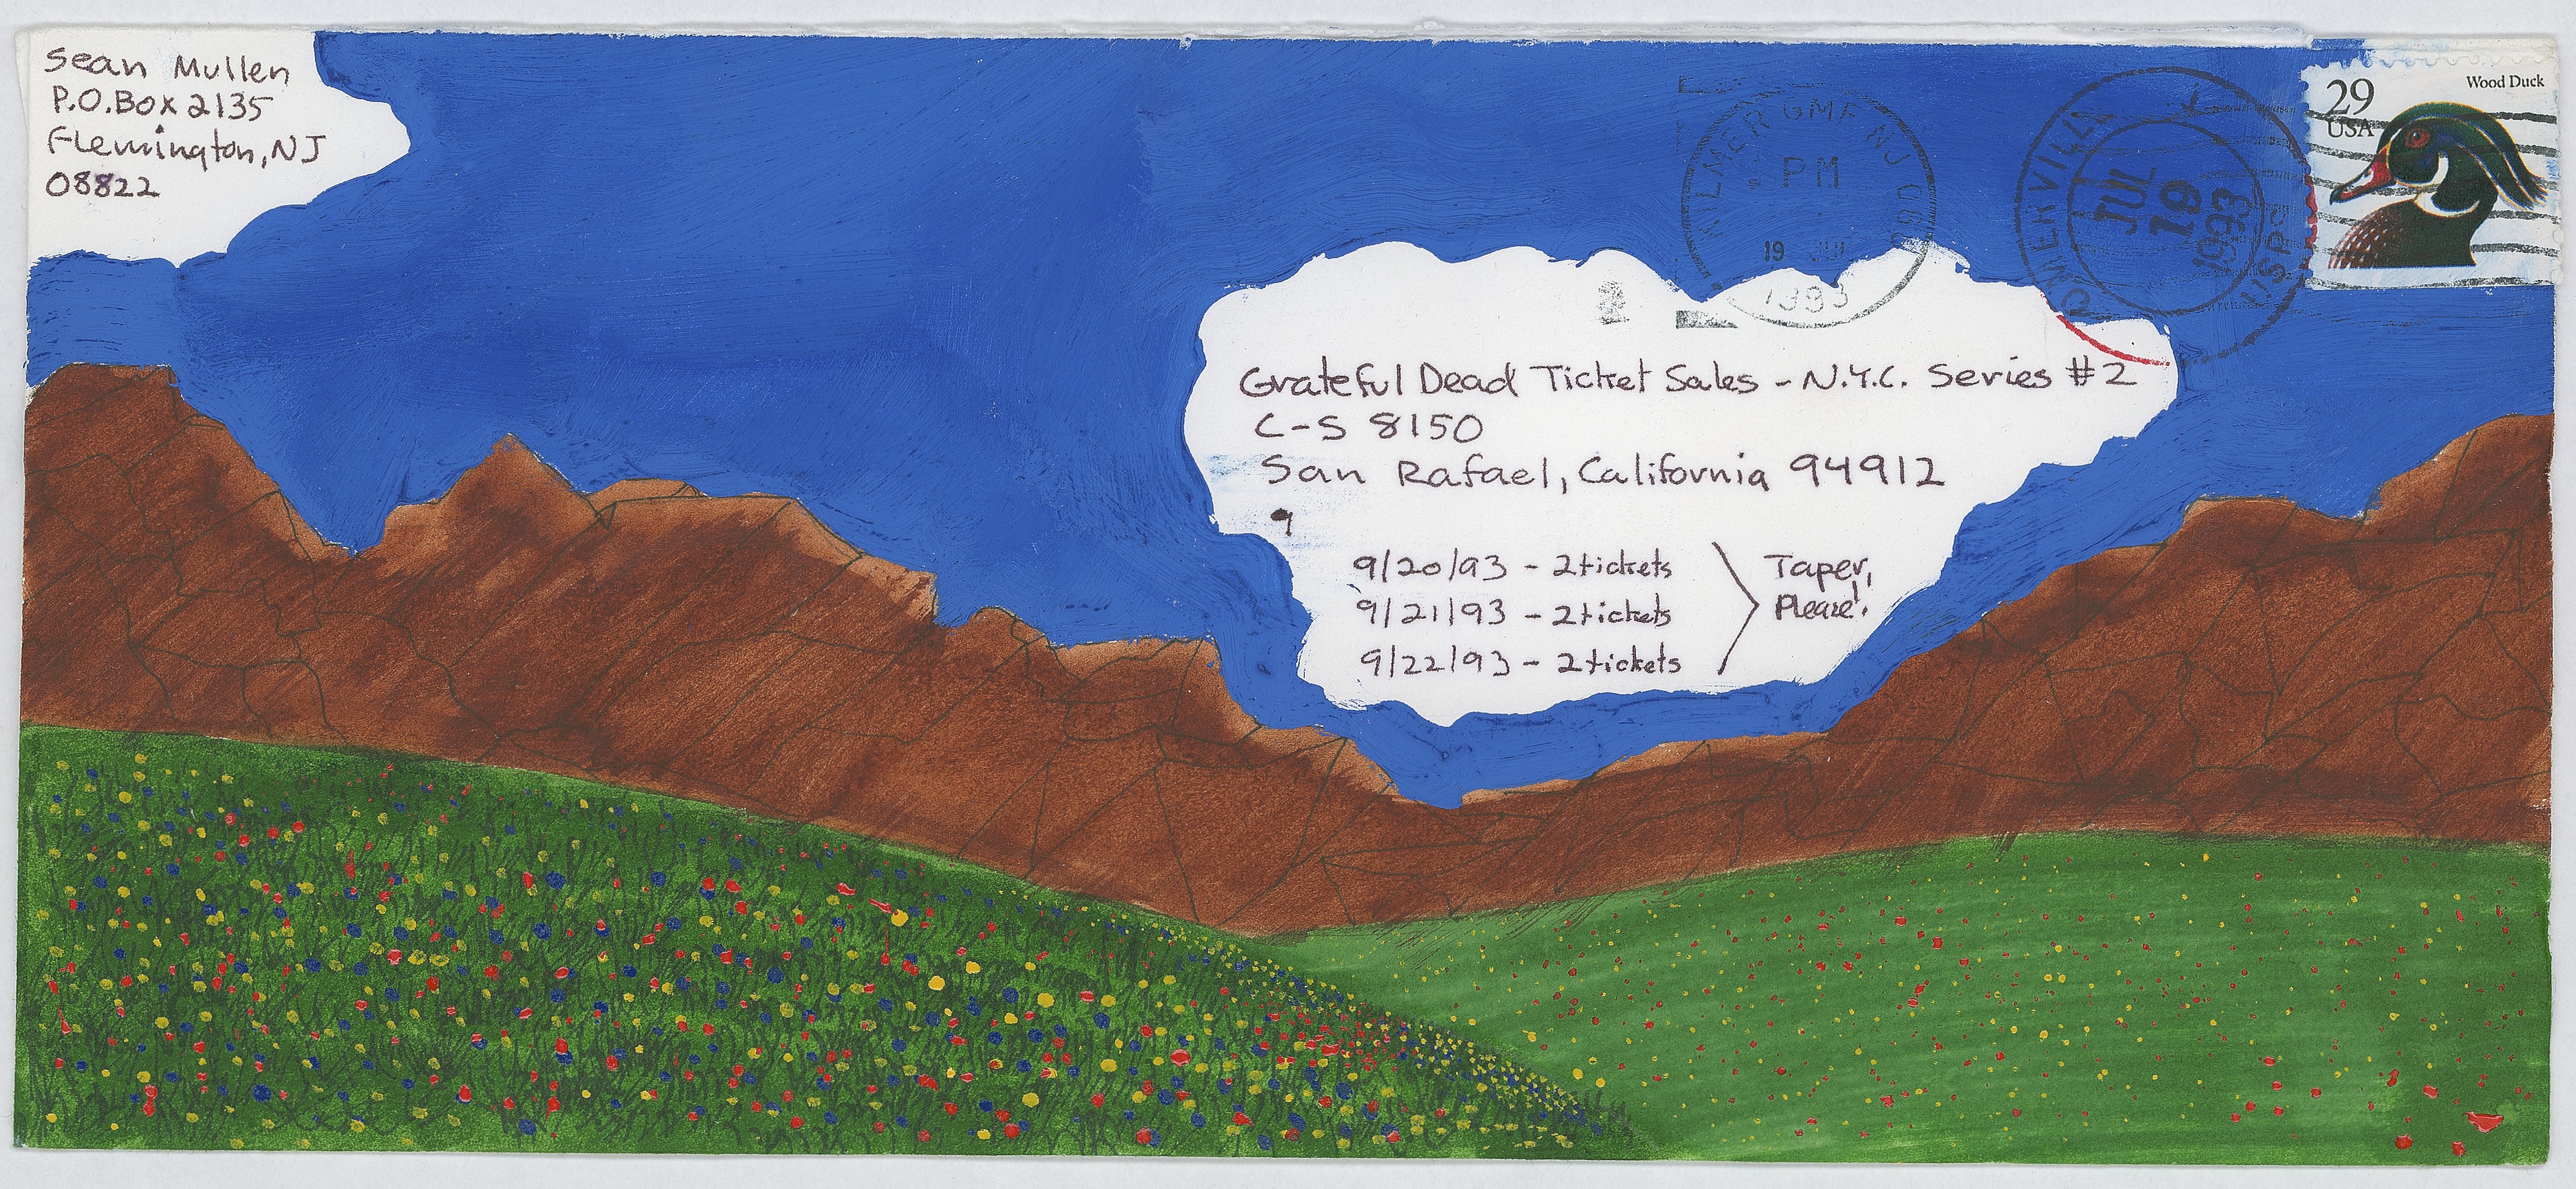 Sean Mullen
P.O. Box 2135
Flemington, NJ
08822
29
USA
Wood Duck
KILMER GMF NJ 088
PM
19 JUL
1993
SOMERVILLE
JUL
19
1993
USPO
Grateful Dead Ticket Sales - N.Y.C. Series #2
C-S 8150
San Rafael, California 94912
9
9/20/93 - 2 tickets
9/21/93 - 2 tickets
9/22/93 - 2 tickets
Taper,
Please!